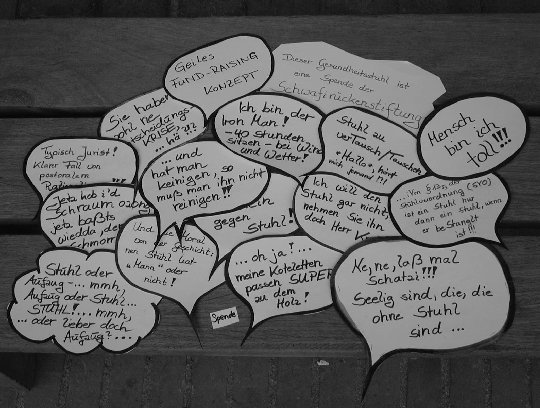 Geiles
FUND-RAISING
KONZEPT
Dieser Gesundheitsstuhl ist
eine Spende der
Schwafirückenstiftung
Sie haben
wohl 'ne
KRISE,
... hä !?!
Ich bin der
Iron Man!
- 40 Stunden
sitzen - bei Wind
und Wetter!
Stuhl zu
vertauschen
* Hallo * hört
mich jemand ?!?!
Mensch
bin ich
toll!!!
Typisch Jurist!
Klarer Fall von
pastoralem
... und
hat man
keinigen, so
muß man ihn nicht
reinigen!!
Jetz hob i'd
Schraum
jetz baßts
wiedda
gegen
Stuhl!
Ich will den
Stuhl gar nicht,
nehmen Sie ihn
doch Herr
... Von
ist ein Stuhl nur
dann ein Stuhl, wenn
er bestuhlt
ist!!!
Und die Moral
von der Geschicht:
nen Stuhl hat
"Mann" oder
nicht!
... oh ja! ...
meine Koteletten
passen SUPER
zu dem
Holz!
Ne, ne, laß mal
Schatzi!!!
Seelig sind, die, die
ohne Stuhl
sind ...
Stuhl oder
Aufzug - ... mmh,
Aufzug oder Stuhl...
STUHL! ... mmh,
... oder lieber doch
Aufzug? ...
Spende